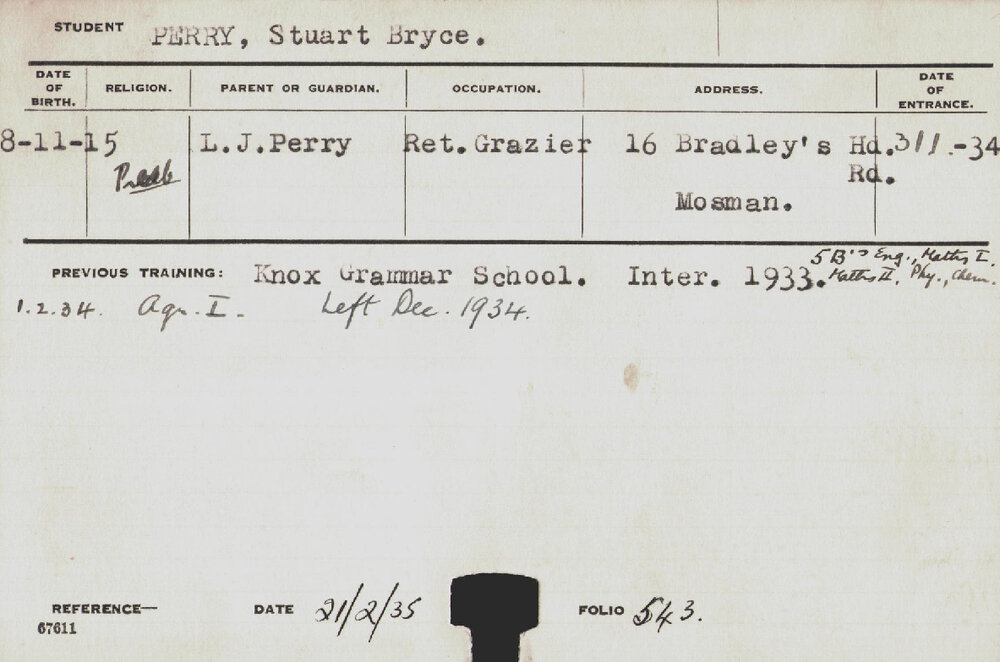 STUDENT PERRY, Stuart Bryce.
DATE OF BIRTH. RELIGION. PARENT OR GUARDIAN. OCCUPATION. ADDRESS. DATE OF ENTRANCE.
8-11-15 L.J.Perry Ret.Grazier 16 Bradley's Hd. 31 1.-34
Presb Rd.
Mosman.
PREVIOUS TRAINING: Knox Grammar School. Inter. 1933. 5B's Eng., Maths I.
Maths II, Phy., Chem.
1.2.34. Agr. I. Left Dec. 1934.
REFERENCE— DATE 21/2/35 FOLIO 543.
67611